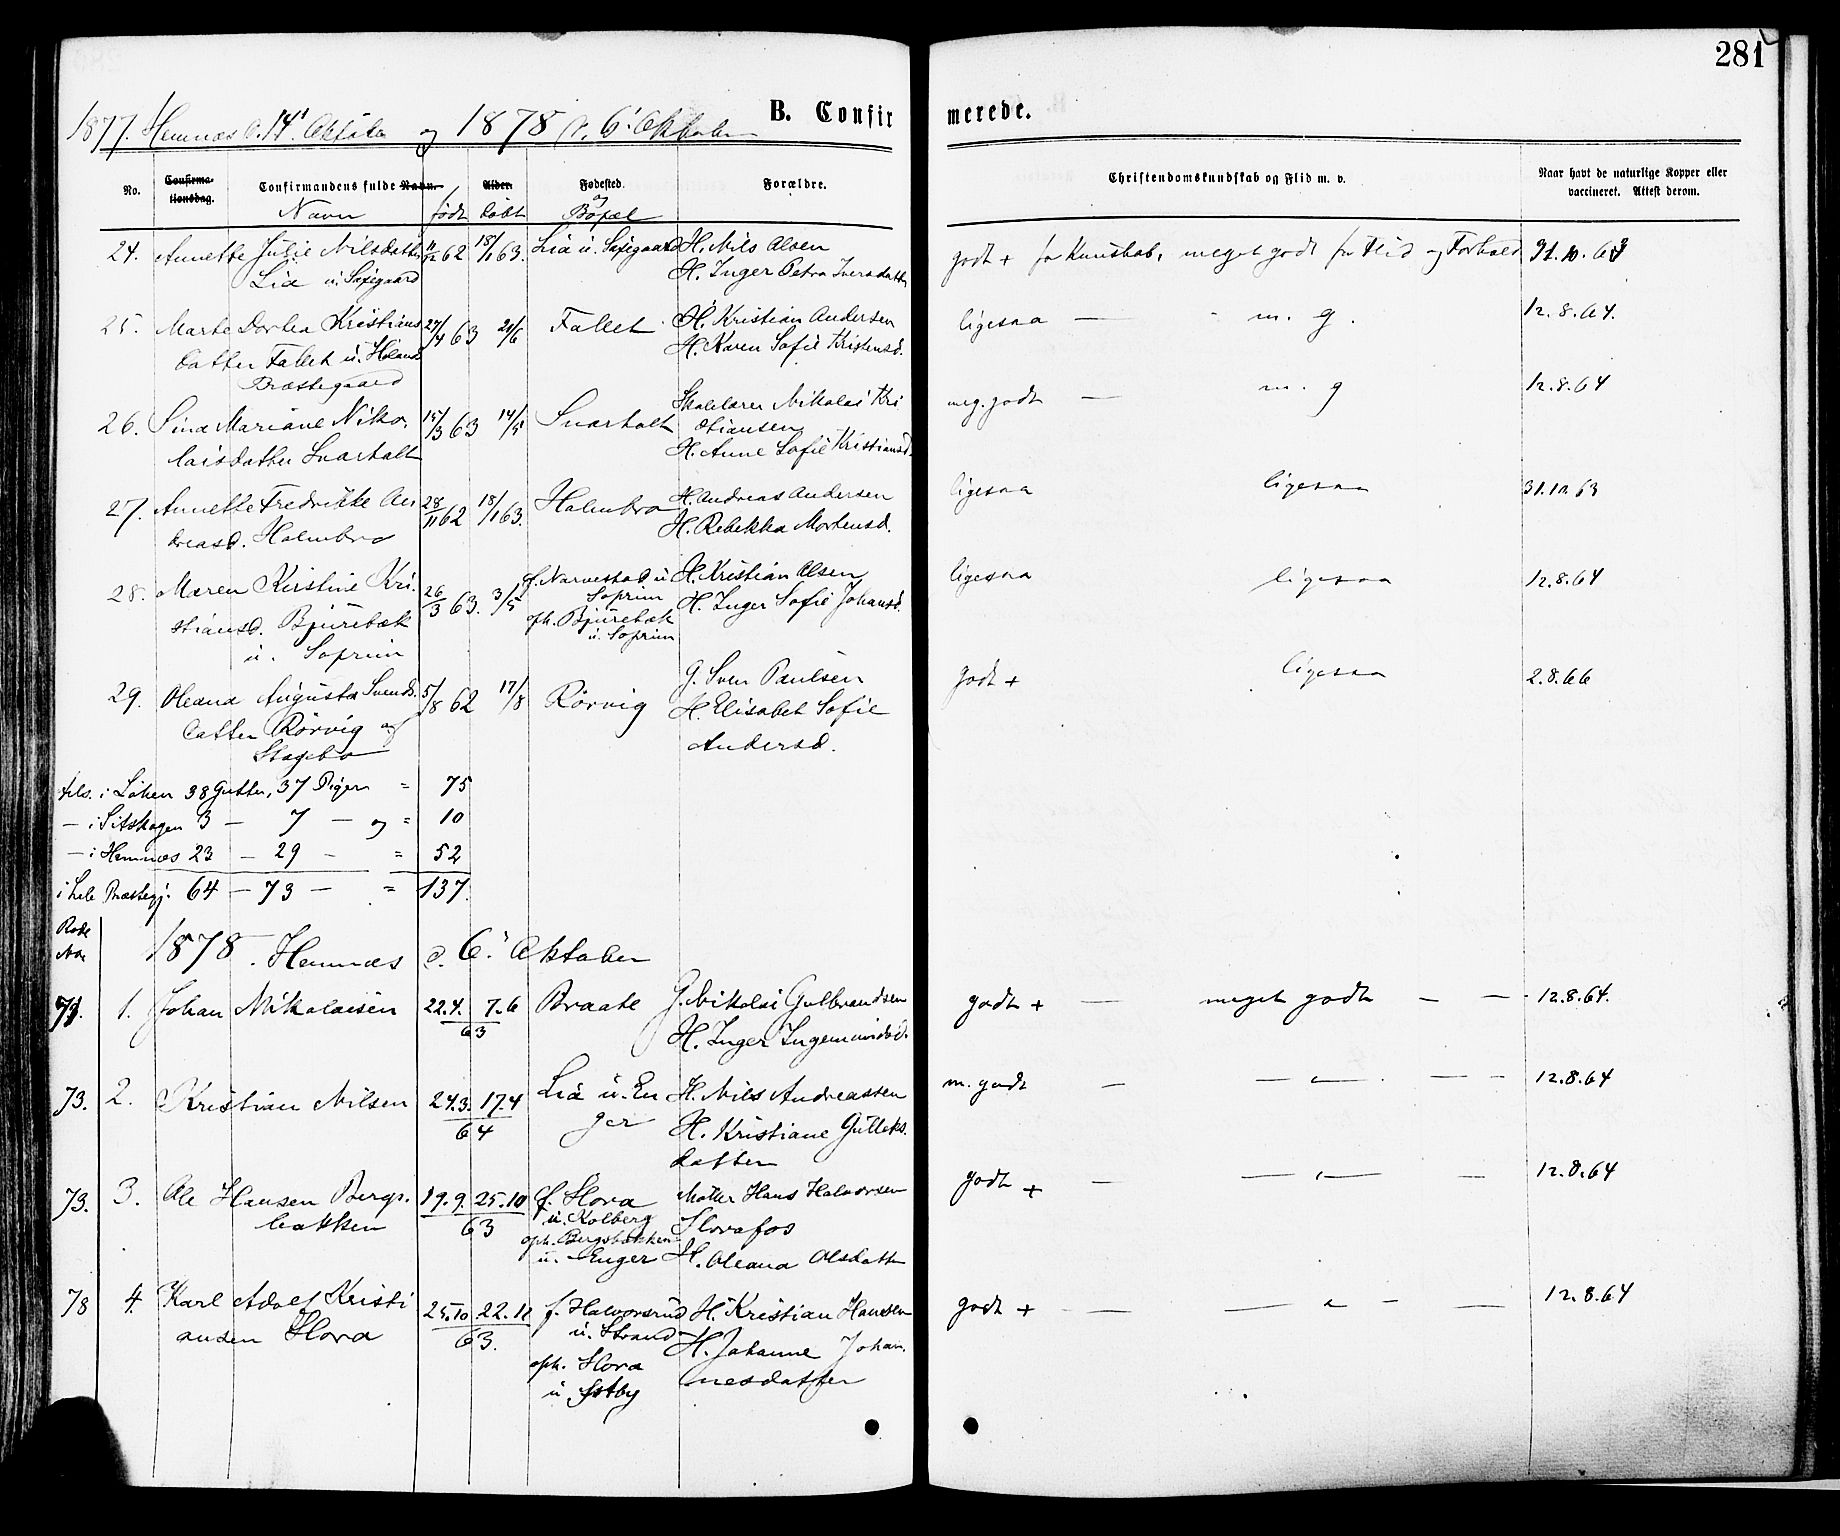 281
B. Confirmerede.
1877. Hemnæs d. 14' Oktober og 1878 d. 6' Oktober
No. Confirmationsdag. Confirmandens fulde Navn. Alder. Fødested. Forældre. Christendomskundskab og Flid m. v. Naar havt de naturlige Kopper eller
vaccineret. Attest derom.
Navn født døbt og Bopæl
24. Annette Julie Nilsdatter 11/12 62 18/1 63. Lia u. Søfegaard H. Nils Olsen godt + for Kunskab, meget godt for Flid og Forhold 31.10.63
Lia u. Søfegaard H. Inger Petra Iversdatter
25. Marte Dortea Kristians 27/4 63 21/6 Fallet H. Kristian Andersen ligesaa — m. g. 12.8.64.
datter Fallet u. Høland H. Karen Sofie Kristensd.
Præstegaard
26. Sina Mariane Niko 15/3 63 14/5 Svarholt Skolelærer Nikolai Kri meg. godt — m. g 12.8.64
laisdatter Svarholt stiansen
H. Anne Sofie Kristiansd.
27. Annette Fredrikke An 28/11 62 18/1 63. Holmbro H. Andreas Andersen ligesaa ligesaa 31.10.63
dreasd. Holmbro H. Rebekka Mortensd.
28. Maren Kirstine Kri. 26/3 63. 3/5 f. Narvestad u. H. Kristian Olsen ligesaa ligesaa 12.8.64
Soprim H. Inger Sofie Johansd.
stiansd. Bjurebæk oph. Bjurebæk
u. Soprim u. Soprim
29. Oleana Augusta Svends 5/8 62 17/8 Rørvig G. Sven Paulsen godt + ligesaa 2.8.66
datter Rørvig H. Elisabet Sofie
Andersd.
tils. i Løken 38 Gutter, 37 Piger = 75
— i Sitskogen 3 — 7 — og = 10
— i Hemnæs 23 — 29 — = 52
i hele Præstegj. 64 — 73 — = 137.
Rode
No
1878. Hemnæs d. 6' Oktober
71. 1. Johan Nikolaisen 22.4. 7.6 Braate G. Nikolai Gulbrandsen godt + — meget godt — — 12.8.64.
63 H. Inger Ingemundsd.
73. 2. Kristian Nilsen 24.3. 17.4 Lia u. En H. Nils Andreassen m. godt — — " — — — 12.8.64
64 ger H. Kristiane Gulleks.
datter
73. 3. Ole Hansen Bergs. 19.9. 25.10 f. Slora Møller Hans Halvorsen godt + — — " — — 12.8.64
bakken 63 u. Kolberg Slorafos
oph. Bergsbakken
u. Enger H. Oleana Olsdatter
78 4. Karl Adolf Kristi 25.10 22.11 f. Halvorsrud H. Kristian Hansen godt + — — " — — 12.8.64
ansen Slora 63. u. Strand H. Johanne Johan.
oph. Slora nesdatter
u. Østby